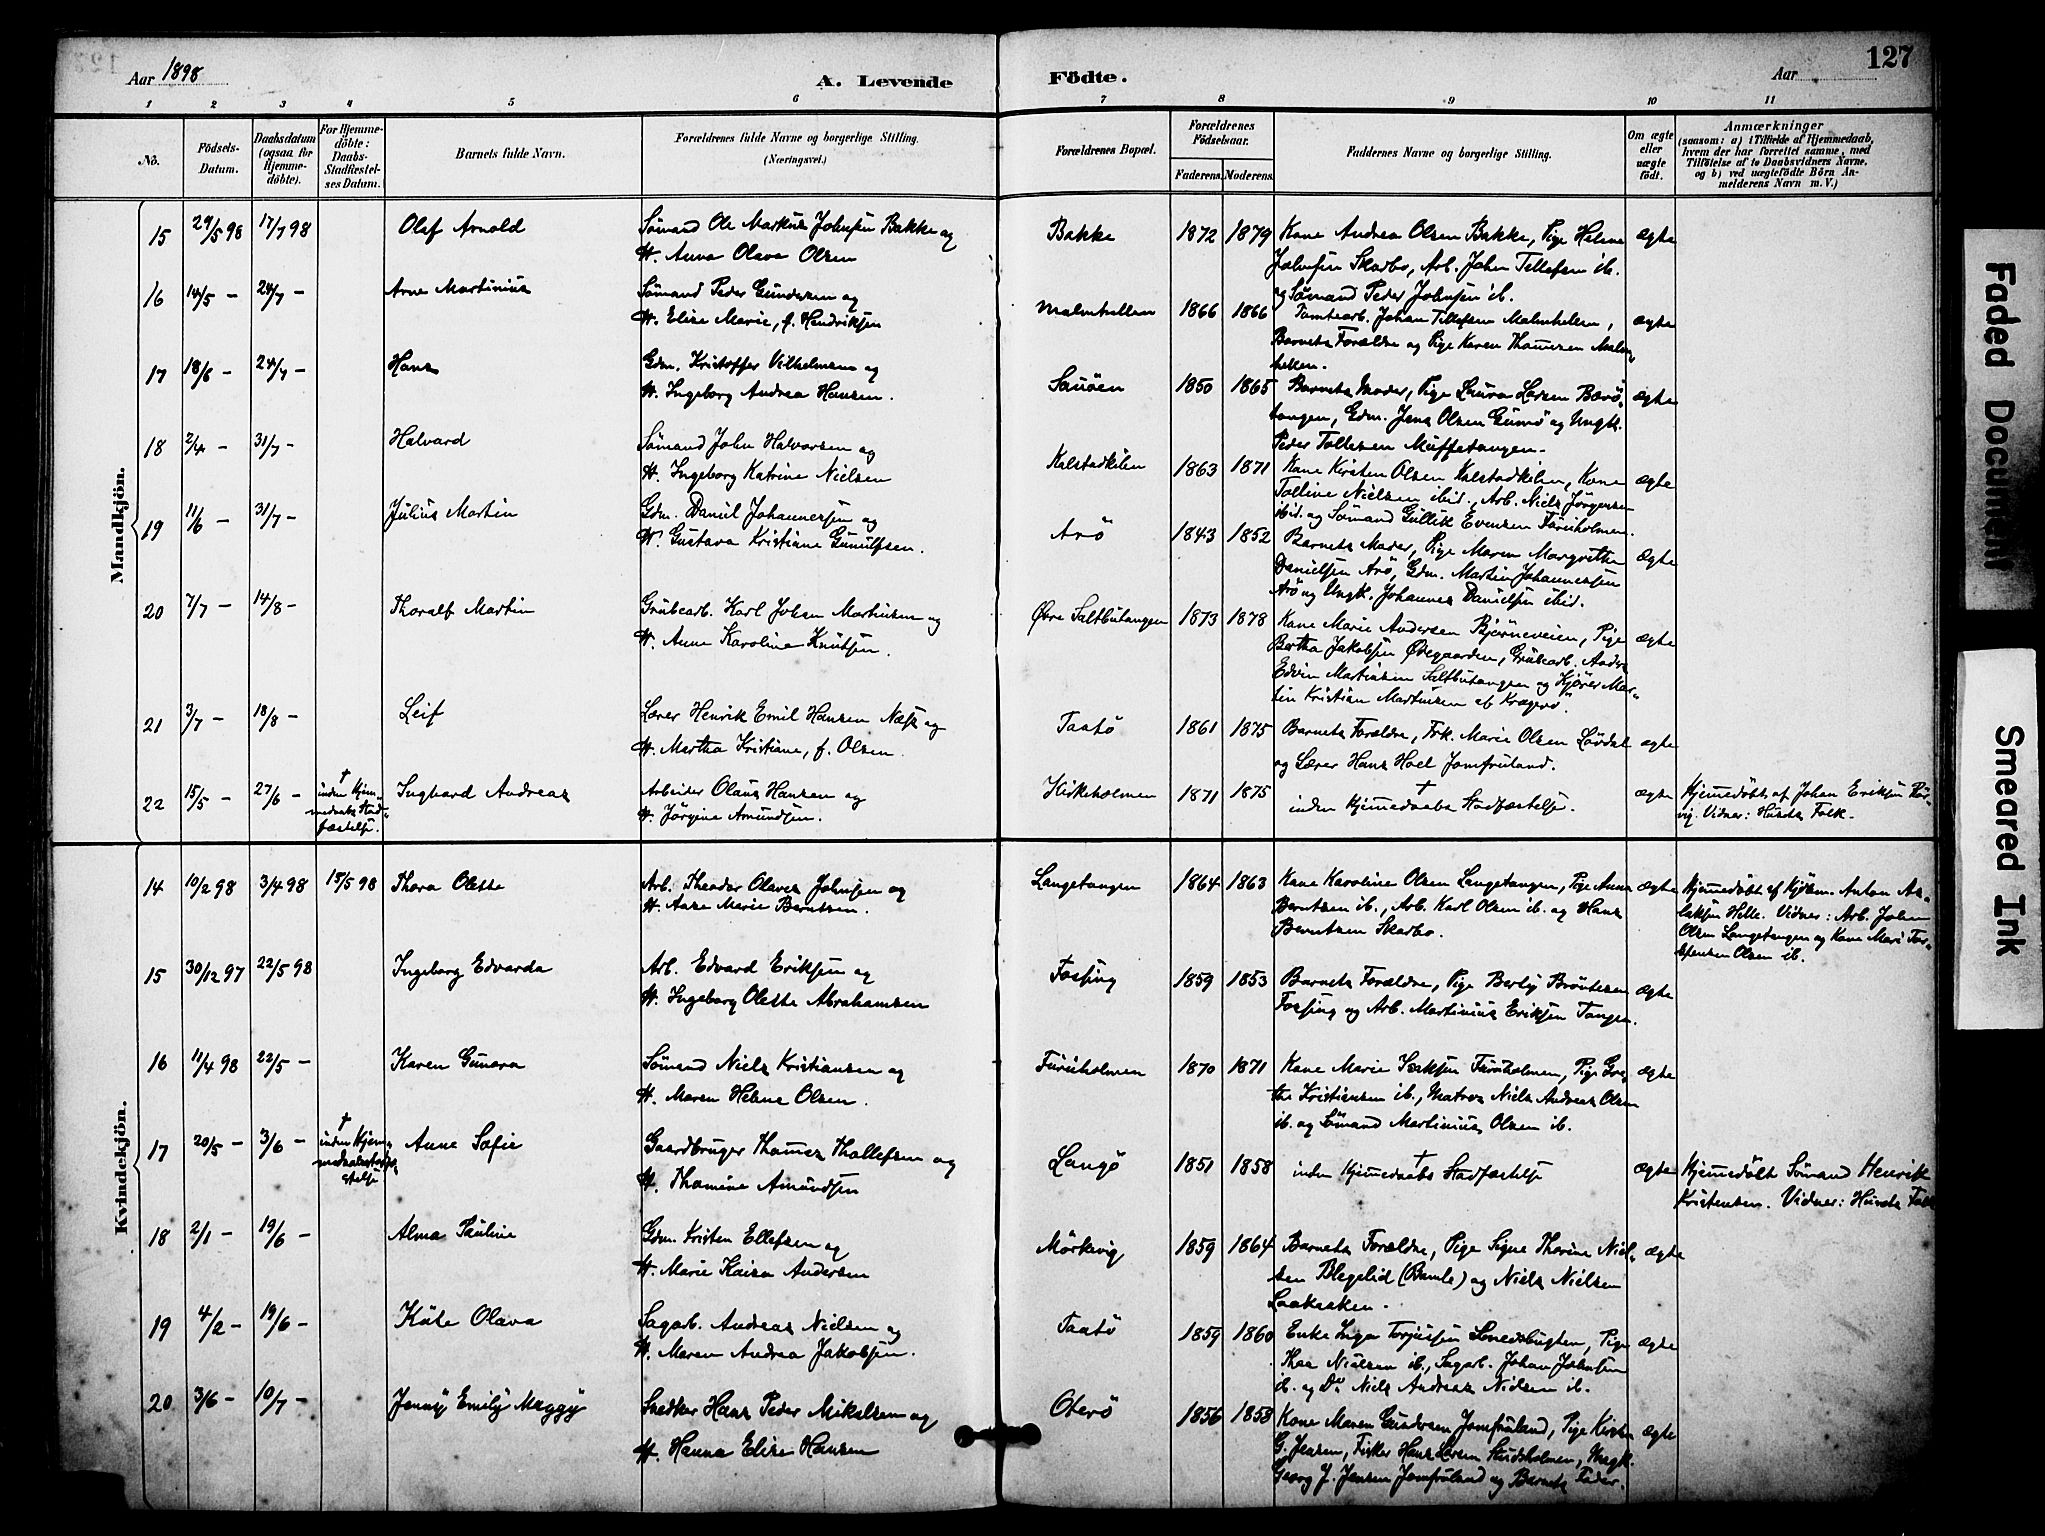 127
Aar 1898
A. Levende Födte.
Aar
1 2 3 4 5 6 7 8 9 10 11
No.
Födsels-Datum.
Daabsdatum (ogsaa for Hjemme-döbte).
For Hjemme-döbte: Daabs-Stadfæstel-ses Datum.
Barnets fulde Navn.
Forældrenes fulde Navne og borgerlige Stilling. (Næringsvei.)
Forældrenes Bopæl.
Forældrenes Födselsaar.
Faderens. Moderens.
Faddernes Navne og borgerlige Stilling.
Om ægte eller uægte födt.
Anmærkninger
(saasom: a) i Tilfælde af Hjemmedaab, hvem der har forrettet samme, med Tilföielse af to Daabsvidners Navne, og b) ved uægtefödte Börn An-melderens Navn m. V.)
Mandkjön.
15 29/5 98 17/7 98 Olaf Arnold Sömand Ole Markus Johnsen Bakke og
H. Anna Olava Olsen
Bakke 1872 1879 Kone Andrea Olsen Bakke, Pige Helene ægte
Johnsen Skarbo, Arb. John Tellefsen ib.
og Sömand Peder Johnsen ib.
16 14/5 - 24/7 - Arne Martinius Sömand Peder Gundersen og
H. Elise Marie, f. Hendriksen
Malmhellen 1866 1866 Tomtearb. Johan Tellefsen Malmhellen, ægte
Barnets Forældre og Pige Karen Thomesen Malm-
hellen.
17 18/6 - 24/7 - Hans Gdm. Kristoffer Vilhelmsen og
H. Ingeborg Andrea Hansen.
Sauöen 1850 1865 Barnets Moder, Pige Laura Larsen Barö- ægte
tangen, Gdm. Jens Olsen Gumö og Ungk.
Peder Tollefsen Muffetangen.
18 2/4 - 31/7 - Halvard Sömand John Halvorsen og
H. Ingeborg Katrine Nielsen
Kalstadkilen 1863 1871 Kone Kirsten Olsen Kalstadkilen, Kone ægte
Talline Nielsen ibid., Arb. Niels Jörgensen
ibid. og Sömand Gullik Evensen Furuholmen.
19 11/6 - 31/7 - Julius Martin Gdm. Daniel Johannesen og
H. Gustava Kristiane Gunulfsen.
Arö 1843 1852 Barnets Moder, Pige Maren Margrethe ægte
Danielsen Arö, Gdm. Martin Johannessen
Arö og Ungk. Johannes Danielsen ibid.
20 7/7 - 14/8 - Thoralf Martin Grubearb. Karl Johan Martinsen og
H. Anne Karoline Knutsen.
Øvre Saltbutangen 1873 1878 Kone Marie Andersen Bjørneveien, Pige ægte
Bertha Jakobsen Ødegaarden, Grubearb. Anders
Edvin Martinsen Saltbutangen og Kjører Mar-
tin Kristian Martinsen af Kragerø.
21 3/7 - 18/8 - Leif Lærer Henrik Emil Hansen Næss og
H. Martha Kristiane, f. Olsen.
Taatö 1861 1875 Barnets Forældre, Frk. Marie Olsen Lövdal ægte
og Lærer Hans Hoel Jomfruland.
22 15/5 - 27/6 - † inden Hjem-
medaabs Stad-
fæstelse.
Ingvard Andreas Arbeider Olaus Hansen og
H. Jörgine Amundsen.
Kirkeholmen 1871 1875 † inden Hjemmedaabs Stadfæstelse. ægte Hjemmedöbt af Johan Eriksen Rör-
vig. Vidner: Husets Folk.
Kvindekjön.
14 10/2 98 3/4 98 15/5 98 Thora Olette Arb. Theodor Olaves Johnsen og
H. Aase Marie Berntsen.
Langetangen 1864 1863 Kone Karoline Olsen Langetangen, Pige Anna ægte
Berntsen ib., Arb. Karl Olsen ib. og Hans
Berntsen Skarbo.
Hjemmedöbt af Kjöbm. Anton As-
laksen Helle. Vidner: Arb. Johan
Olsen Langetangen og Kone Mari Tor-
stensen Olsen ib.
15 30/12 97 22/5 98 Ingeborg Edvarda Arb. Edvard Eriksen og
H. Ingeborg Olette Abrahamsen
Fossing 1859 1853 Barnets Forældre, Pige Berly Bröntesen ægte
Fossing og Arb. Martinius Eriksen Tangen.
16 11/4 98 22/5 - Karen Gunara Sömand Niels Kristiansen og
H. Maren Helene Olsen.
Furuholmen 1870 1871 Kone Marie Isaksen Furuholmen, Pige Gre- ægte
the Kristiansen ib., Matros Niels Andreas Olsen
ib. og Sömand Martinius Olsen ib.
17 20/5 - 3/6 - † inden Hjem-
medaabsstadfæ-
stelse
Anne Sofie Gaardbruger Thomes Thollefsen og
H. Thomine Amundsen
Langö 1851 1858 † inden Hjemmedaabs Stadfæstelse ægte Hjemmedöbt Sömand Henrik
Kristensen. Vidner: Husets Folk
18 2/1 - 19/6 - Alma Pauline Gdm. Kristen Ellefsen og
H. Marie Kaisa Andersen
Mörkevig 1859 1864 Barnets Forældre, Pige Signe Thorine Niel- ægte
sen Blegelid (Bamle) og Niels Nielsen
Laakaaken.
19 4/2 - 19/6 - Käte Olava Sagarb. Andreas Nielsen og
H. Maren Andrea Jakobsen.
Taatö 1859 1860 Enke Inger Torjusen Snedsbugten, Pige ægte
Thea Nielsen ib., Sagarb. Johan Johnsen
ib. og Do. Niels Andreas Nielsen ib.
20 3/6 - 10/7 - Jenny Emily Meggy Snedker Hans Peder Mikelsen og
H. Hanna Elise Hansen
Oterö 1856 1858 Kone Maren Gundersen Jomfruland, Pige Kirsten ægte
G. Jensen, Fisker Hans Larsen Skudsholmen, Ungk.
Georg J. Jensen Jomfruland og Barnets Fader.
Faded Document
Smeared Ink